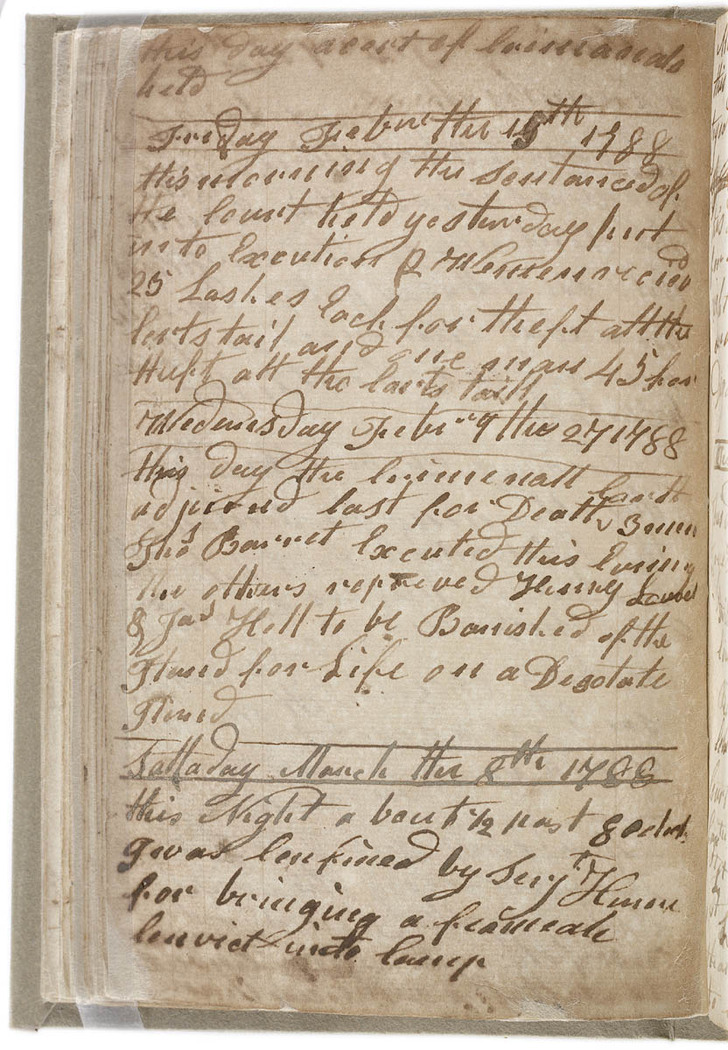 this day a cort of Criminals
held
Friday Febru the 15th 1788
this morning the Sentanceds of
the Court held yesterday put
into Execution 2 Wemen recivd
25 Lashes Each for theft att the
carts tail and one man 45 for
theft att the carts tail
Wednesday Febru y the 27 1788
this day the Crimenall Court
adjurnd cast for Death 3 men
Jno Barret Executed this Evning
the others reprived Henry
& Jas Hall to be Banished of the
Iland for Life on a Desolate
Iland
Sattaday March the 8th 1788
this Night a bout ½ past 8 oclok
I was Confined by Serjt Hume
for bringing a feameale
Convict into Camp